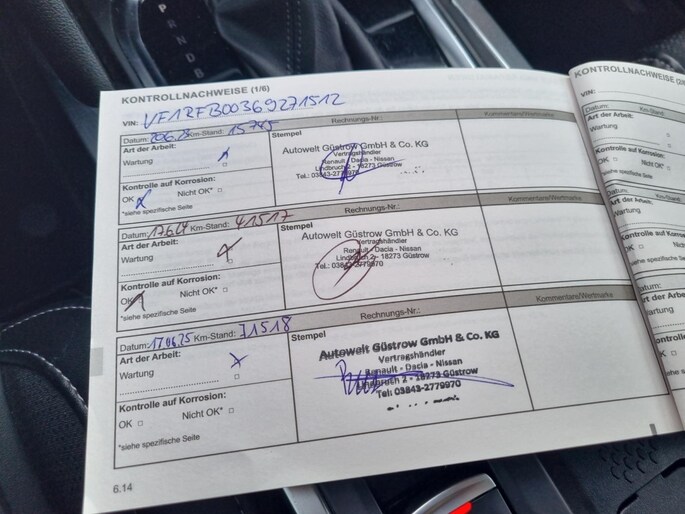 P R N D B
KONTROLLNACHWEISE (1/6)
VIN: VF1RFB00369271512
Datum: Km-Stand: 15745
Rechnungs-Nr.:
Kommentare/Wertmarke
Art der Arbeit:
Wartung
Kontrolle auf Korrosion:
OK Nicht OK*
*siehe spezifische Seite
Stempel
Autowelt Güstrow GmbH & Co. KG
Vertragshändler
Renault - Dacia - Nissan
Lindbruch 2 - 18273 Güstrow
Tel.: 03843-2779970
Datum: 17.6.24 Km-Stand: 41517
Rechnungs-Nr.:
Kommentare/Wertmarke
Art der Arbeit:
Wartung
Kontrolle auf Korrosion:
OK Nicht OK*
*siehe spezifische Seite
Stempel
Autowelt Güstrow GmbH & Co. KG
Vertragshändler
Renault - Dacia - Nissan
Lindbruch 2 - 18273 Güstrow
Tel.: 03843-2779970
Datum: 17.06.25 Km-Stand: 71518
Rechnungs-Nr.:
Kommentare/Wertmarke
Art der Arbeit:
Wartung
Kontrolle auf Korrosion:
OK Nicht OK*
*siehe spezifische Seite
Stempel
Autowelt Güstrow GmbH & Co. KG
Vertragshändler
Renault - Dacia - Nissan
Lindbruch 2 - 18273 Güstrow
Tel: 03843-2779970
6.14
KONTROLLNACHWEISE (2/
VIN:
Datum: Km-Stand
Art der Arbeit:
Wartung
Kontrolle auf
OK
*siehe
Datum:
Art der Arbeit:
Wartung
Kontrolle
OK